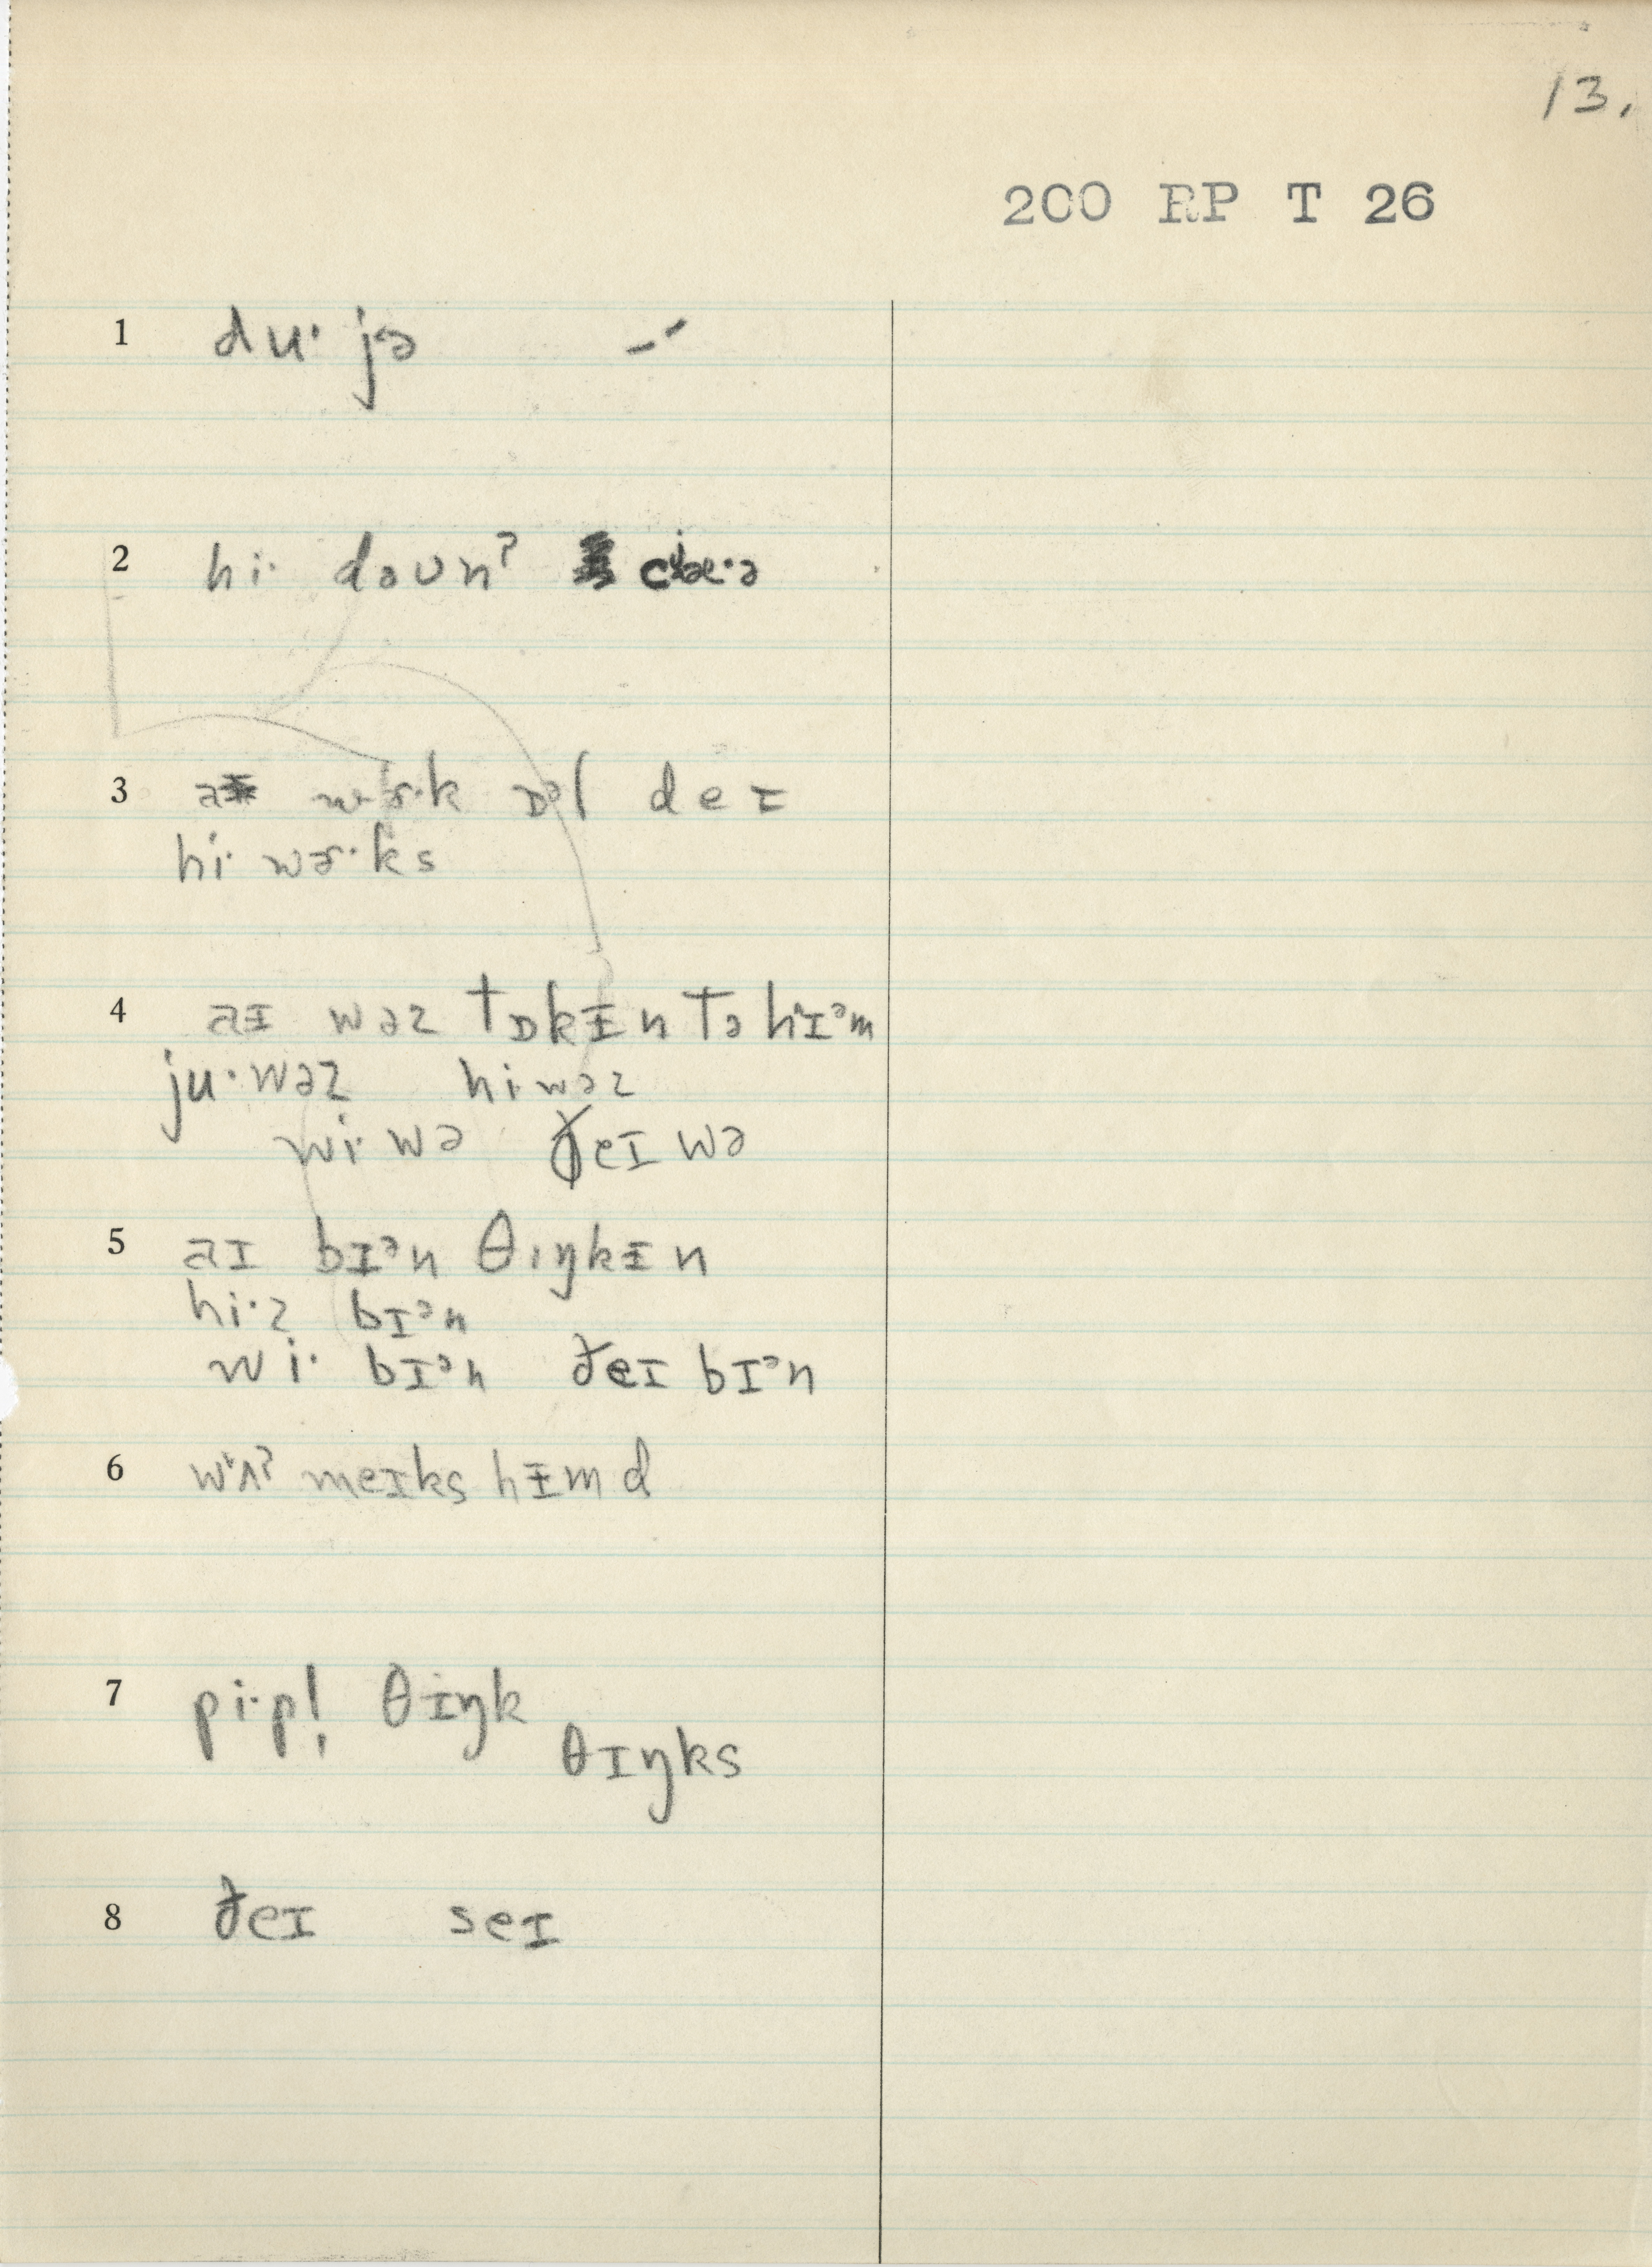 13.
200 RP T 26
1 du· jə
2 hi· dəʊnʔ
3 wɚ·k ɒᵊl deɪ
hi· wɚ·ks
4 aɪ wəz tɒkɪ̵n tə hɪᵊm
ju· wəz hi· wəz
wi· wə ðeɪ wə
5 aɪ bɪᵊn θɪŋkɪ̵n
hi·z bɪᵊn
wi· bɪᵊn ðeɪ bɪᵊn
6 meɪks hɪ̵m d
7 pi·p! θɪŋk
θɪŋks
8 ðeɪ seɪ